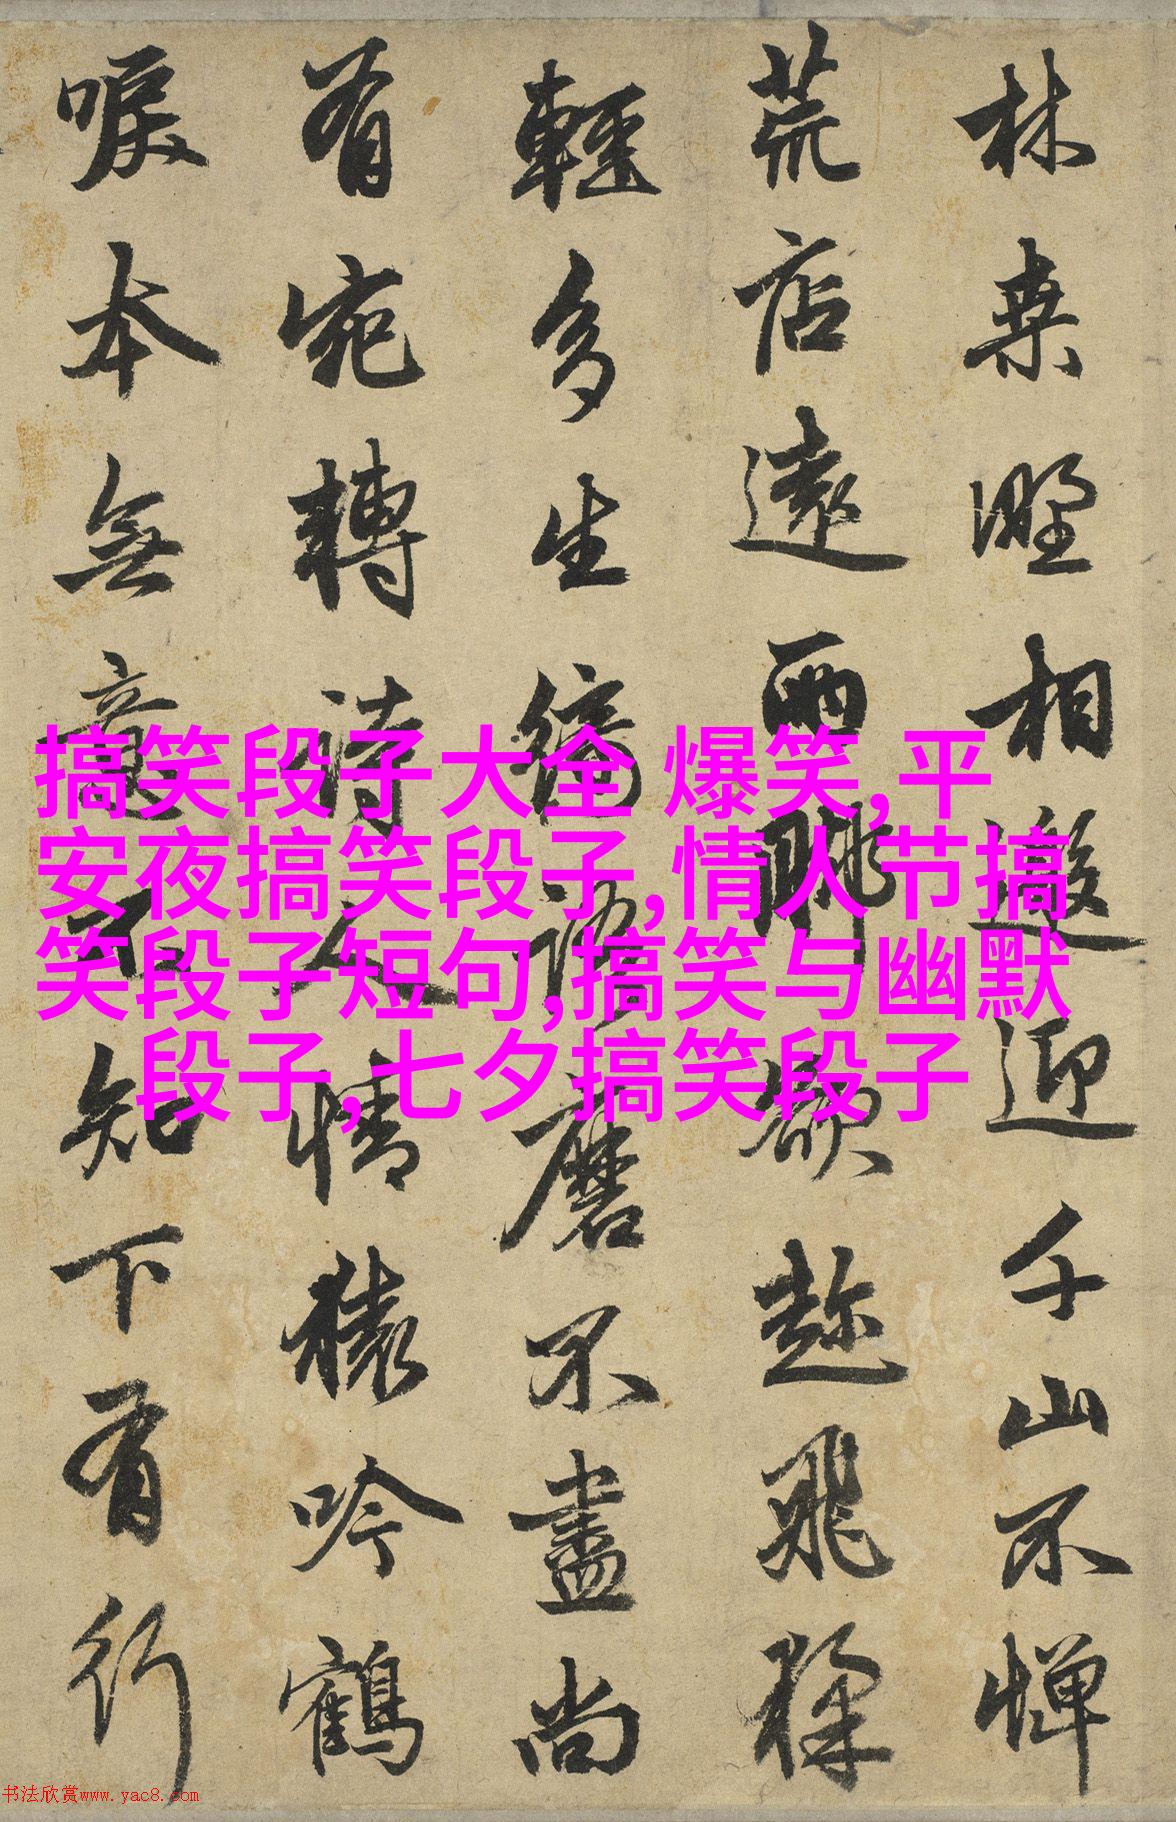 林桒野相邀迎千山不憚
荒店遠兩脚欲趂飛猱
輕多生綺語磨不盡尚
有宛轉詩人情猿吟鶴
唳本無意不知下有行
搞笑段子大全 爆笑,平
安夜搞笑段子,情人节搞
笑段子短句,搞笑与幽默
段子,七夕搞笑段子
书法欣赏www.yac8.com